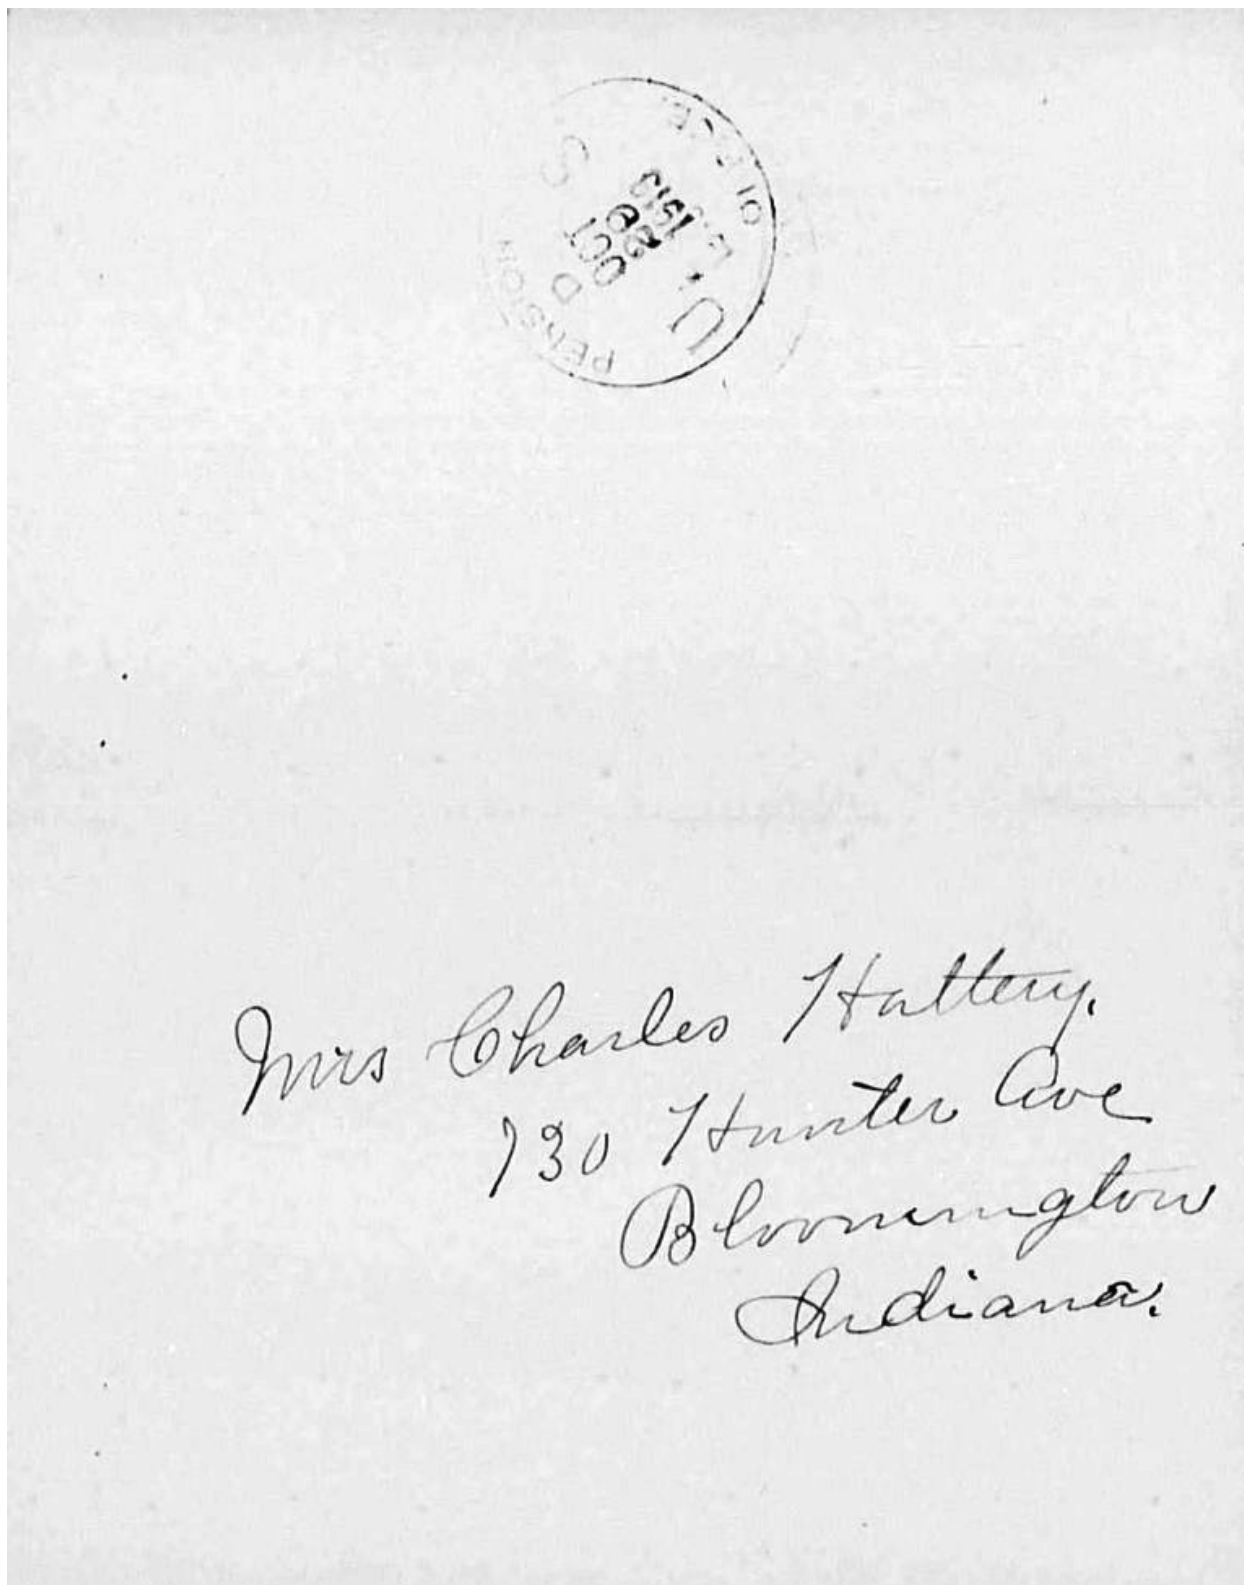 U. S. PENSION OFFICE.
OCT
29
Mrs Charles Hattery.
730 Hunter Ave
Bloomington
Indiana.